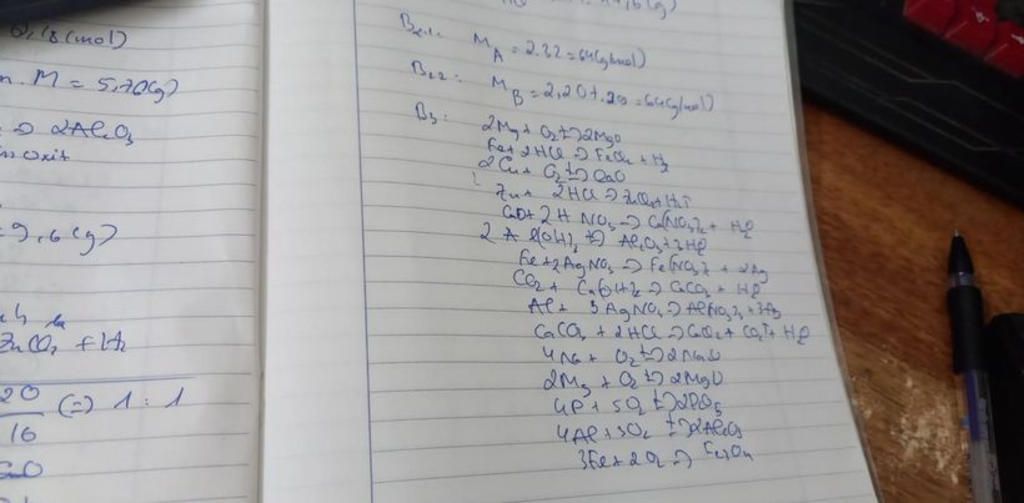 0,18(mol)
m. M = 5,70(g)
=> 2Al2O3
oxit
= 9,6(g)
ZnCl2 + H2
20
16
(=) 1 : 1
CuO
B2.1: MA = 2.32 = 64(g/mol)
B2.2: MB = 2,207.29 = 64(g/mol)
B3:
2Mg + O2 t=> 2MgO
Fe + 2HCl => FeCl2 + H2
2Cu + O2 t=> CuO
Zn + 2HCl => ZnCl2 + H2↑
CuO + 2HNO3 => Cu(NO3)2 + H2O
2Al(OH)3 t=> Al2O3 + 3H2O
Fe + 2AgNO3 => Fe(NO3)2 + 2Ag
CO2 + Ca(OH)2 => CaCO3 + H2O
Al + 3AgNO3 => Al(NO3)3 + 3Ag
CaCO3 + 2HCl => CaCl2 + CO2↑ + H2O
4Na + O2 t=> 2Na2O
2Mg + O2 t=> 2MgO
4P + 5O2 t=> 2P2O5
4Al + 3O2 t=> 2Al2O3
3Fe + 2O2 => Fe3O4